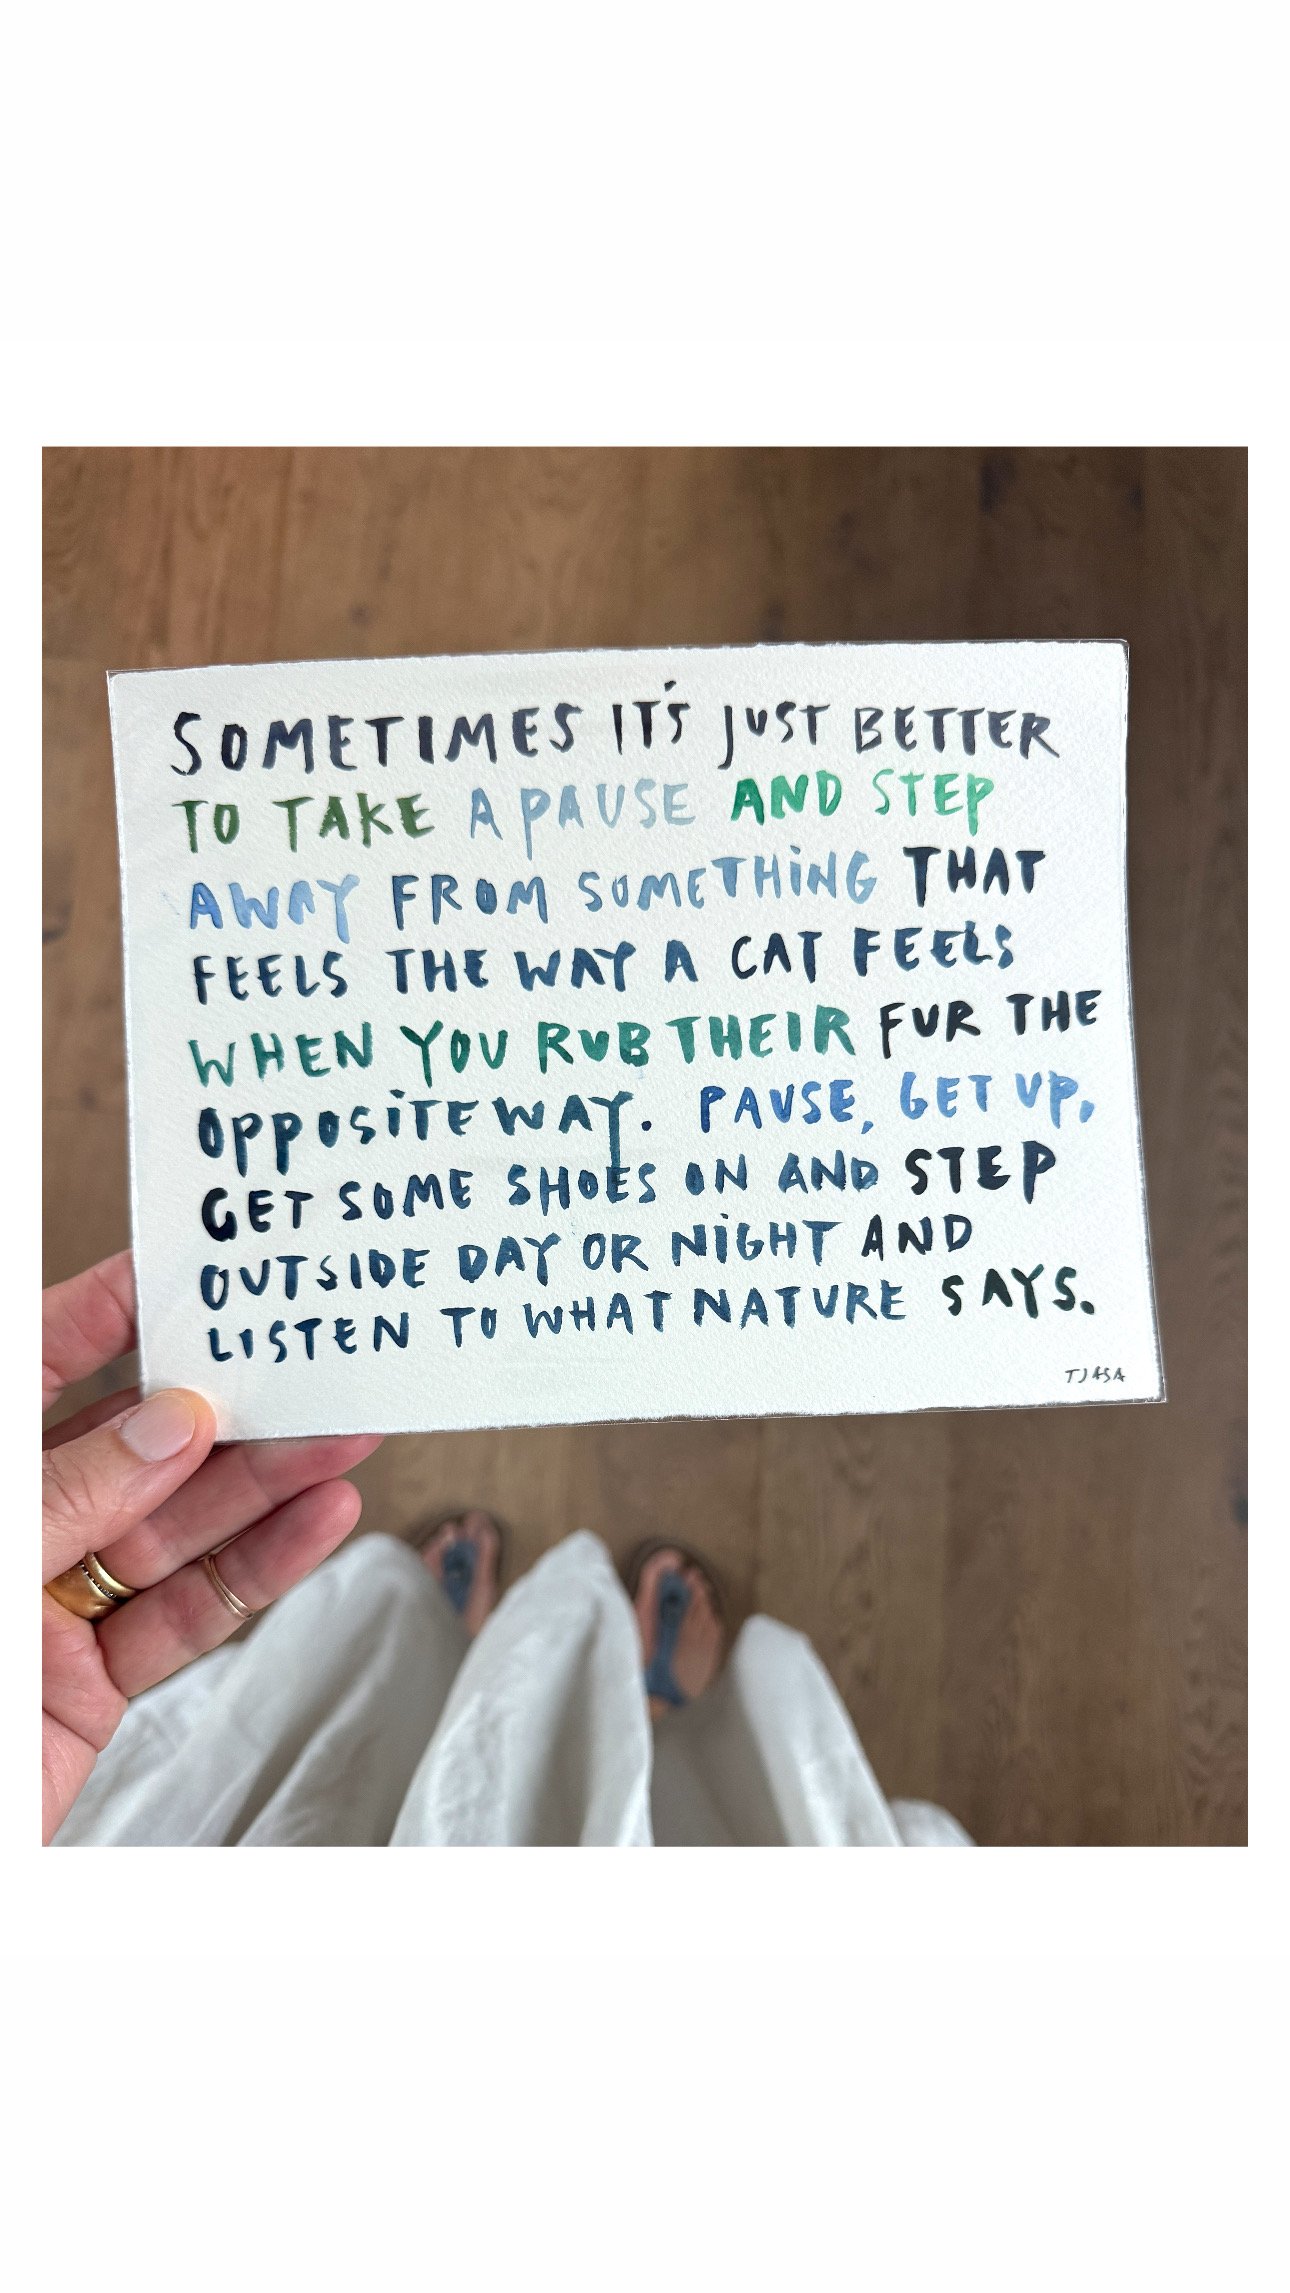 SOMETIMES IT'S JUST BETTER
TO TAKE A PAUSE AND STEP
AWAY FROM SOMETHING THAT
FEELS THE WAY A CAT FEELS
WHEN YOU RUB THEIR FUR THE
OPPOSITE WAY. PAUSE, GET UP,
GET SOME SHOES ON AND STEP
OUTSIDE DAY OR NIGHT AND
LISTEN TO WHAT NATURE SAYS.
TJASA